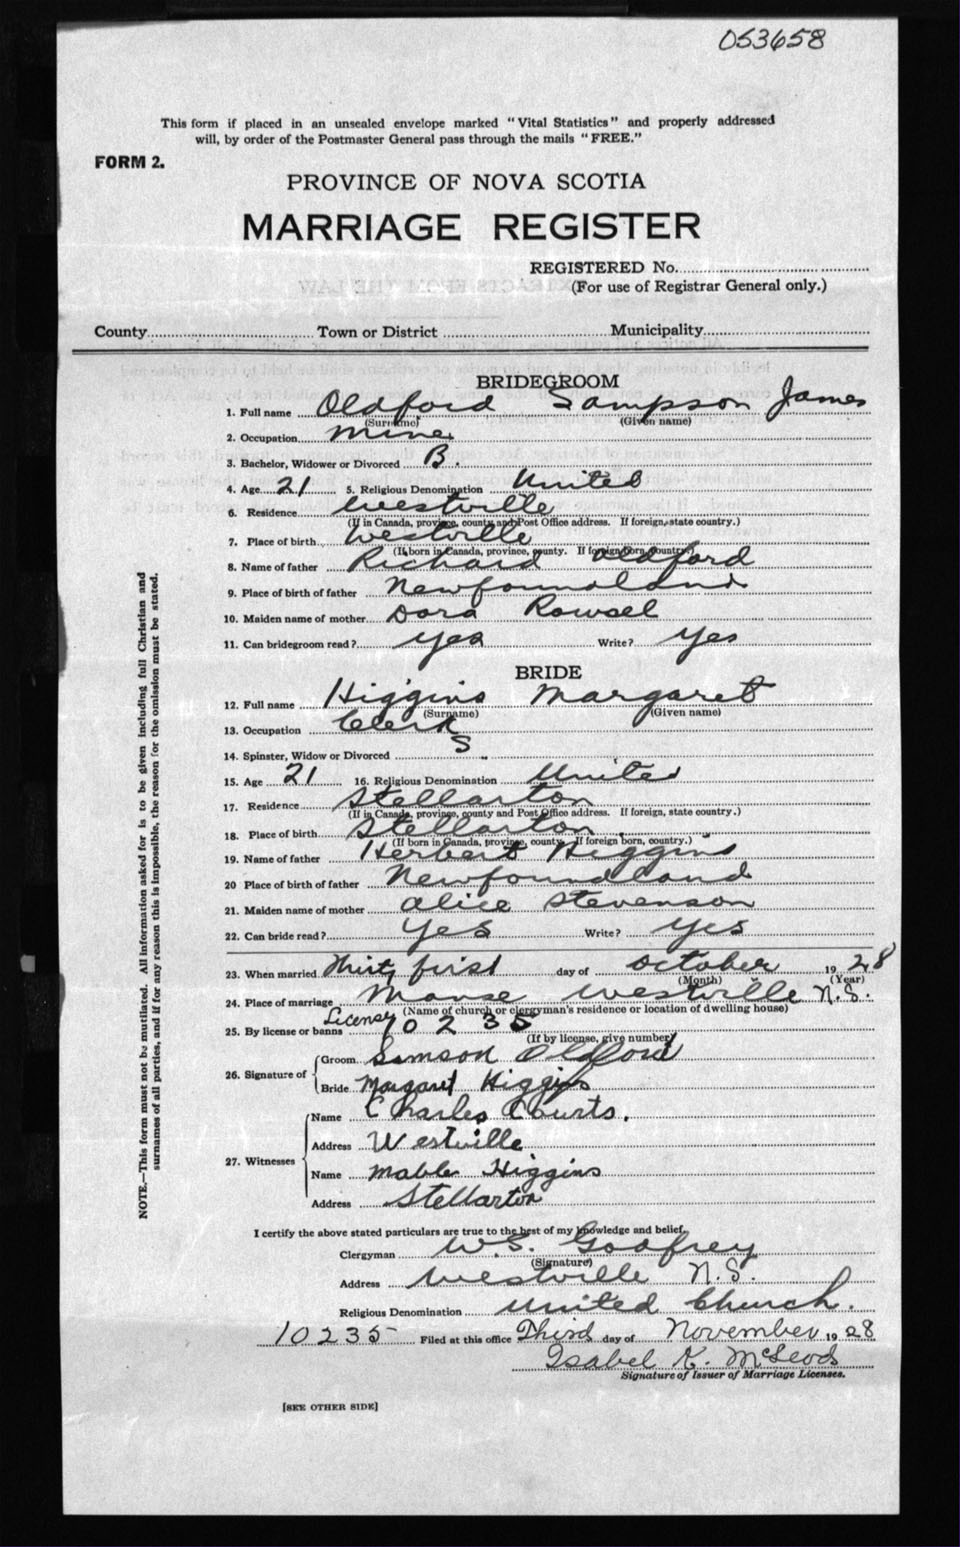 053658
This form if placed in an unsealed envelope marked "Vital Statistics" and properly addressed
will, by order of the Postmaster General pass through the mails "FREE."
FORM 2.
PROVINCE OF NOVA SCOTIA
MARRIAGE REGISTER
REGISTERED No.
(For use of Registrar General only.)
County Town or District Municipality
BRIDEGROOM
1. Full name Oldford Sampson James
(Surname) (Given name)
2. Occupation Miner
3. Bachelor, Widower or Divorced B.
4. Age 21 5. Religious Denomination United
6. Residence Westville
(If in Canada, province, county and Post Office address. If foreign, state country.)
7. Place of birth Westville
(If born in Canada, province, county. If foreign born, country.)
8. Name of father Richard Oldford
9. Place of birth of father Newfoundland
10. Maiden name of mother Dora Rowsel
11. Can bridegroom read? Yes Write? Yes
BRIDE
12. Full name Higgins Margaret
(Surname) (Given name)
13. Occupation Clerk
14. Spinster, Widow or Divorced S
15. Age 21 16. Religious Denomination United
17. Residence Stellarton
(If in Canada, province, county and Post Office address. If foreign, state country.)
18. Place of birth Stellarton
(If born in Canada, province, county. If foreign born, country.)
19. Name of father Herbert Higgins
20 Place of birth of father Newfoundland
21. Maiden name of mother Alice Stevenson
22. Can bride read? Yes Write? Yes
23. When married Thirty first day of October 1928
(Month) (Year)
24. Place of marriage Manse Westville N.S.
(Name of church or clergyman's residence or location of dwelling house)
25. By license or banns License 10235
(If by license, give number)
26. Signature of Groom Samson Oldford
Bride Margaret Higgins
27. Witnesses Name Charles Courts.
Address Westville
Name Mable Higgins
Address Stellarton
I certify the above stated particulars are true to the best of my knowledge and belief.
Clergyman W.S. Godfrey
(Signature)
Address Westville N.S.
Religious Denomination United Church.
10235 Filed at this office Third day of November 1928
Isabel K. McLeod
Signature of Issuer of Marriage Licenses.
[SEE OTHER SIDE]
NOTE.—This form must not be mutilated. All information asked for is to be given including full Christian and
surnames of all parties, and if for any reason this is impossible, the reason for the omission must be stated.